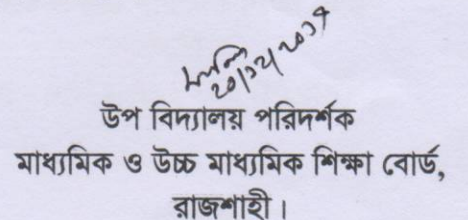 ২০/১২/২০১৭
উপ বিদ্যালয় পরিদর্শক
মাধ্যমিক ও উচ্চ মাধ্যমিক শিক্ষা বোর্ড,
রাজশাহী।